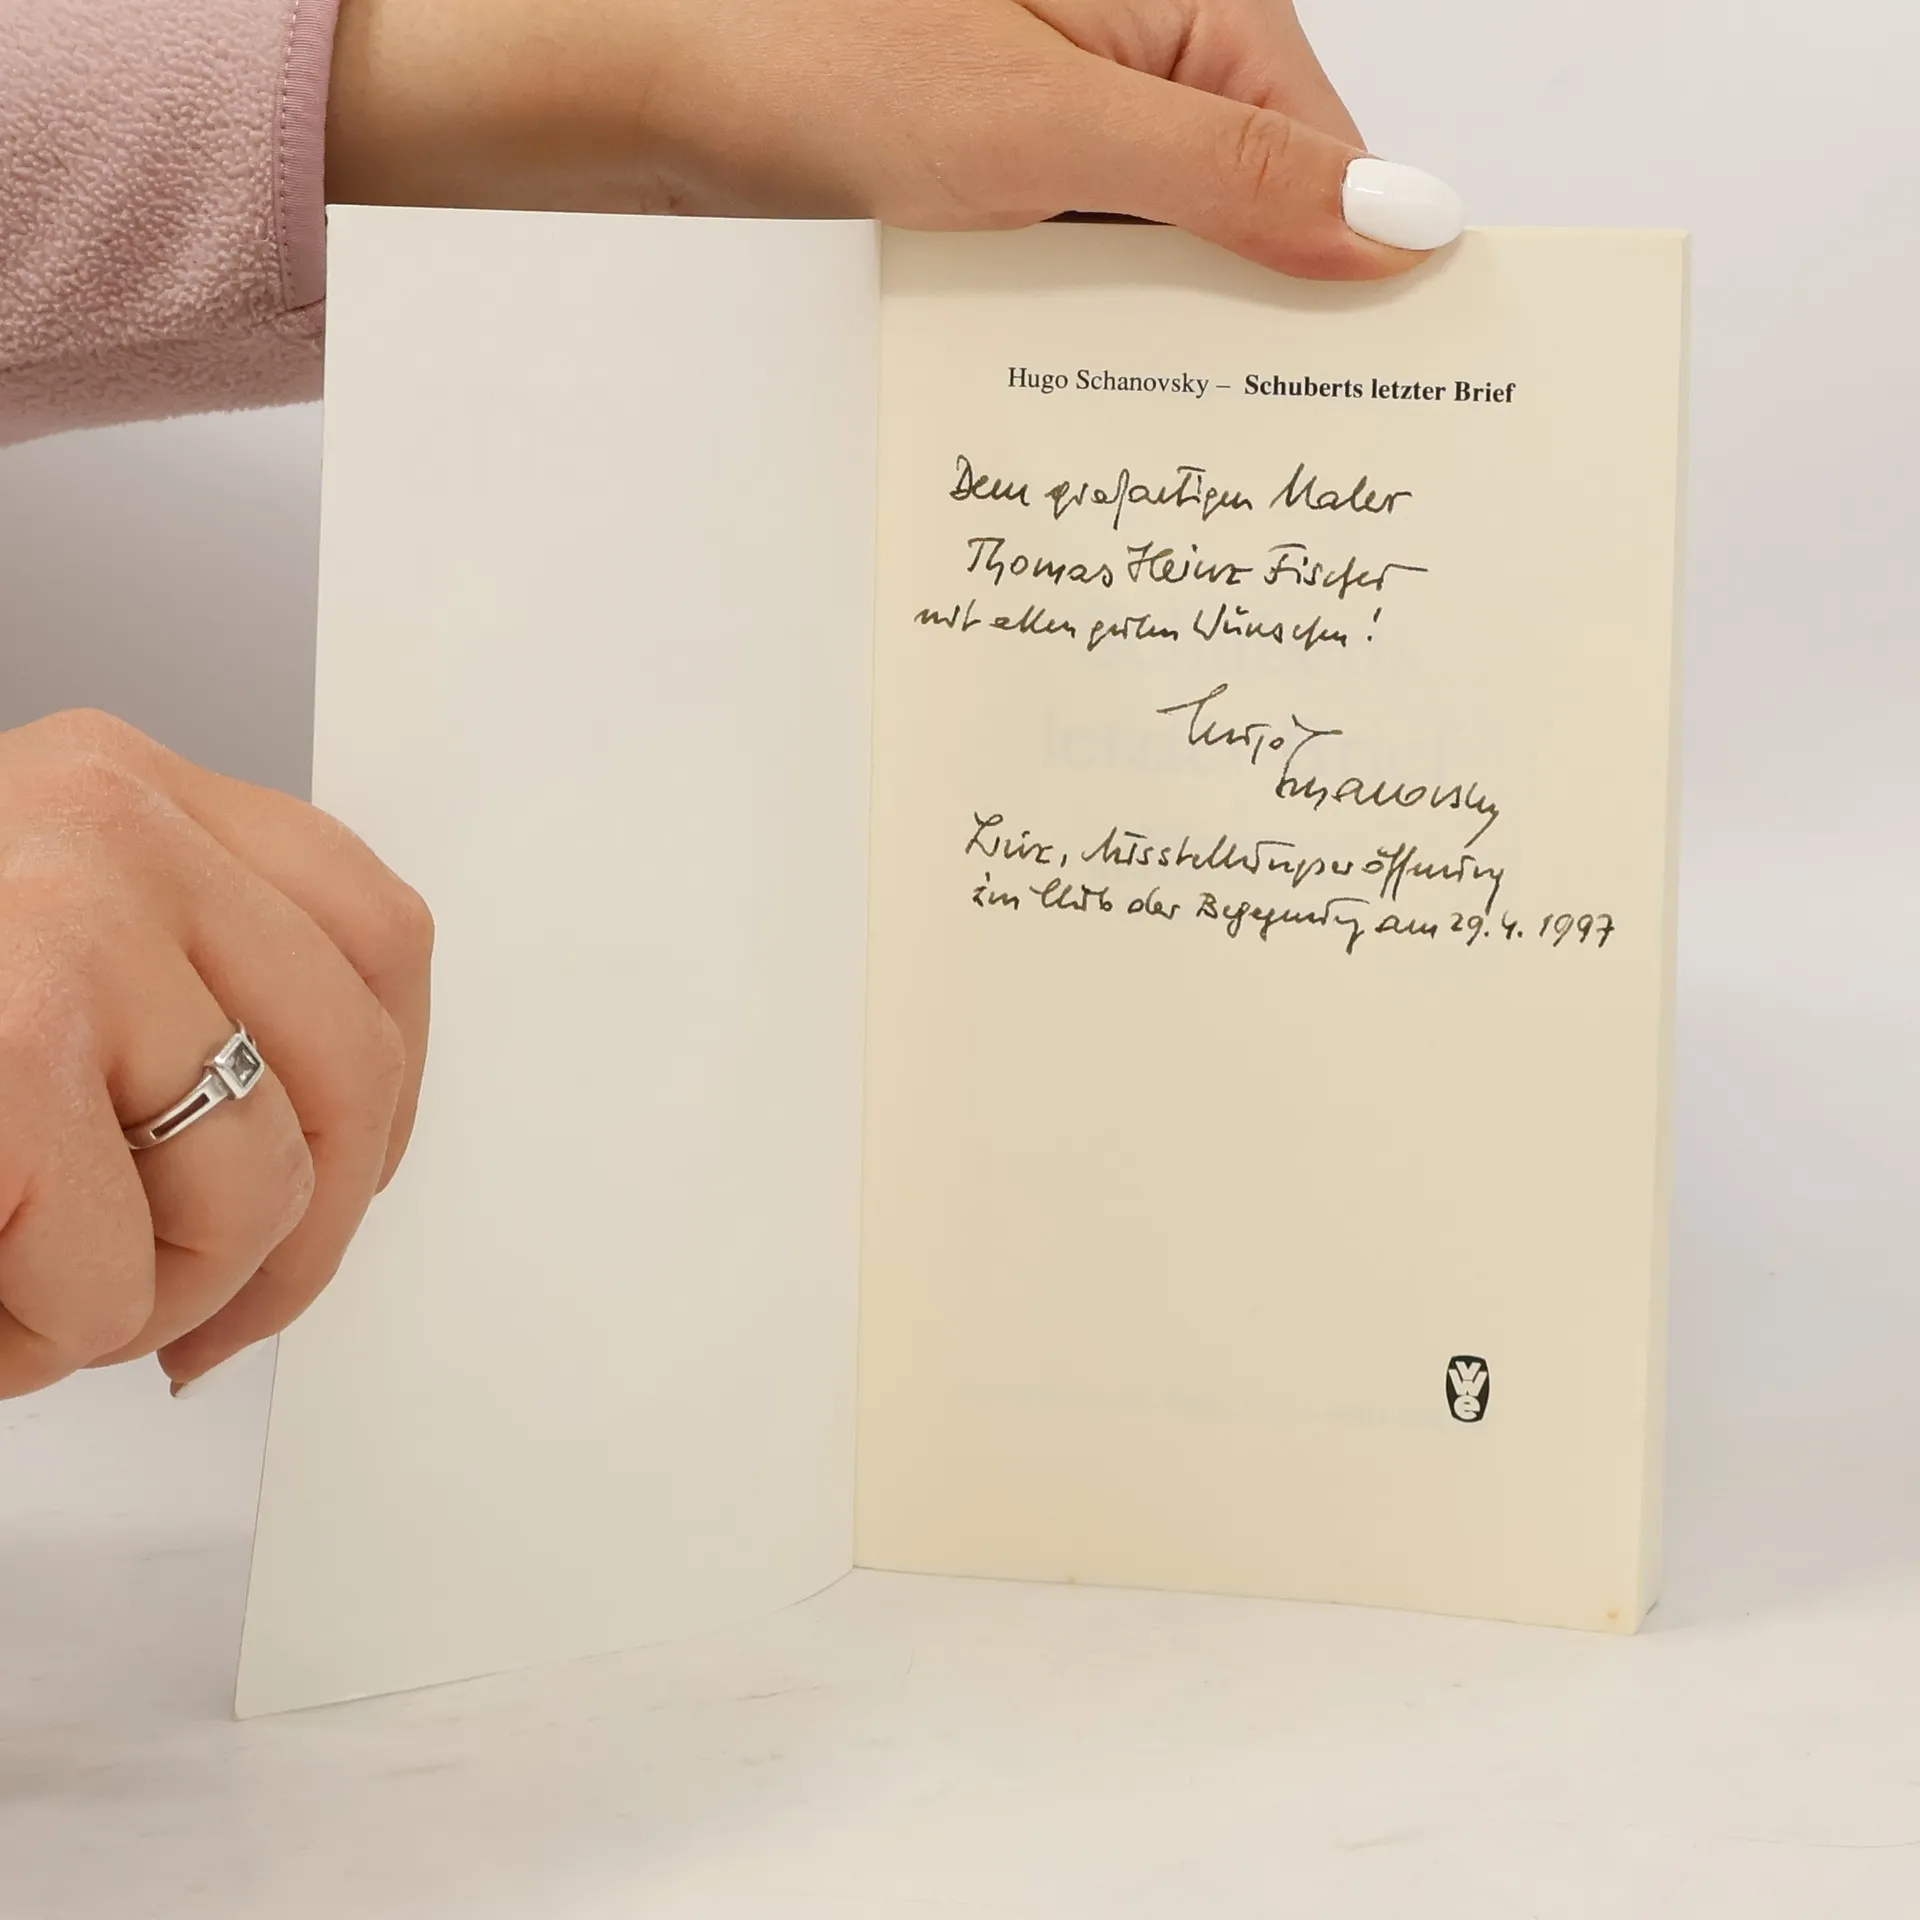 Hugo Schanovsky – Schuberts letzter Brief
Dem großartigen Maler
Thomas Heinz Fischer
mit allen guten Wünschen!
Hugo
Schanovsky
Linz, Ausstellungseröffnung
im Club der Begegnung am 29.4.1997
VWe